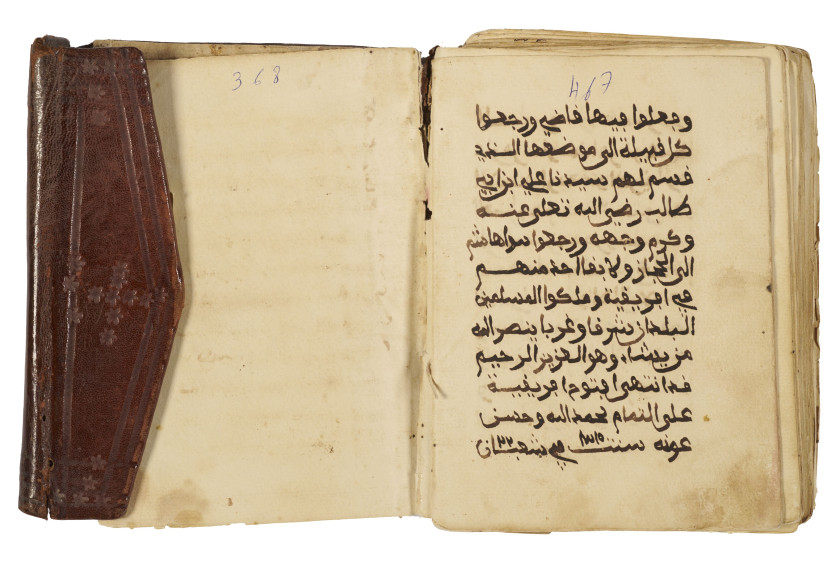 368
467
وجعلوا فيها قاضي ورجعوا
كل قبيلة الى موضعها الذي
قسم لهم سيدنا علي ابن ابي
طالب رضي الله تعلى عنه
وكرم وجهه ورجعوا بنواهاشم
الى الحجاز ولا بقا احد منهم
في افريقية وملكوا المسلمين
البلدان شرقا وغربا ينصر الله
من يشاء وهو العزيز الرحيم
قد انتهى افتوح افريقية
على التمام بحمد الله وحسن
عونه سنت في شعبان